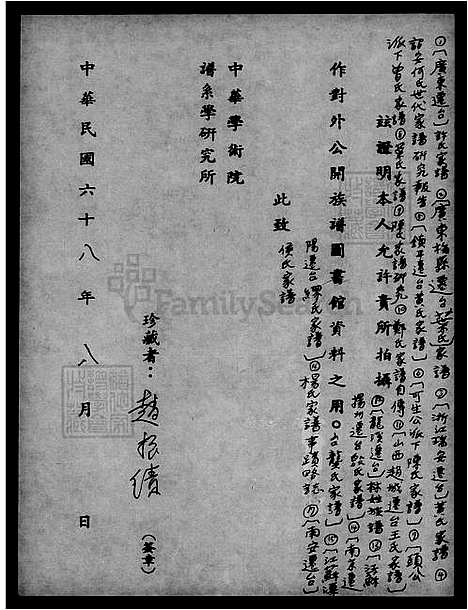 ①〔廣東遷台〕許氏家譜 ②〔廣東梅縣遷台〕葉氏家譜 ③〔浙江瑞安遷台〕黃氏家譜 ④
詔安何氏世代家譜研究報告 ⑤〔鎮平遷台黃氏家譜〕⑥〔可生公派下陳氏家譜〕⑦〔頭公
派下曾氏家譜 ⑧葉氏家譜 ⑨陳氏家譜研究 ⑩鄭氏家譜自傳 ⑪〔山西趙城遷台王氏家譜〕
茲證明本人允許貴所拍攝
⑫〔龍溪遷台〕林姓族譜 ⑬〔江蘇
揚州遷台殷氏家譜〕⑭〔南京遷
作對外公開族譜圖書館資料之用。
台龔氏家譜〕⑮〔江蘇溧
陽遷台繆氏家譜〕⑯楊氏家譜事蹟略誌 ⑰〔南安遷台〕
侯氏家譜
此致
中華學術院
譜系學研究所
珍藏者：趙振績
(簽章)
中華民國六十八年八月 日
FamilySearch